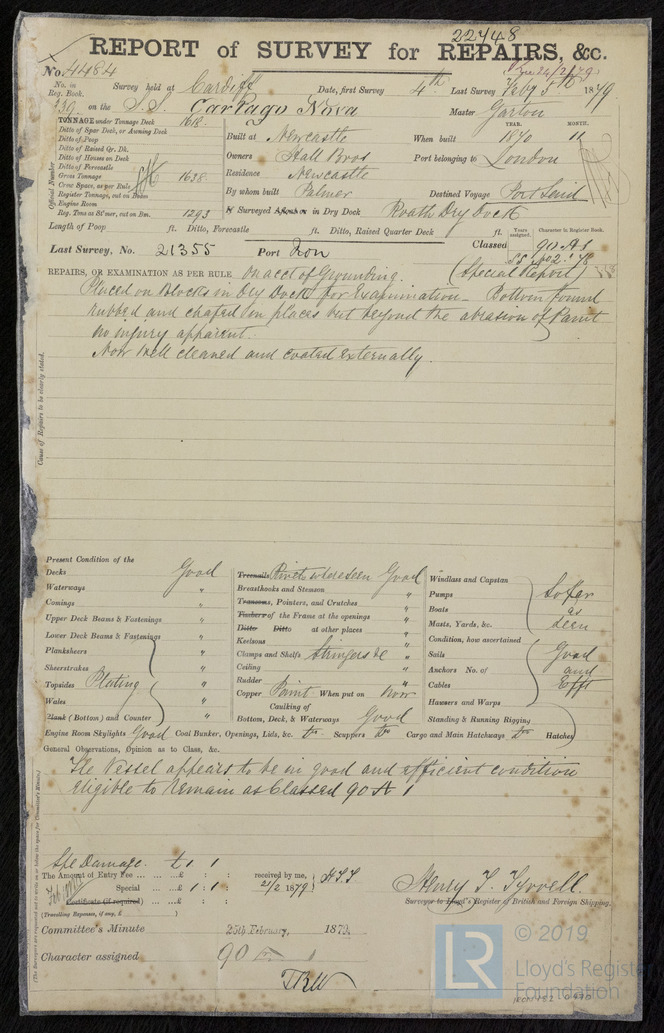 22748
REPORT of SURVEY for REPAIRS, &c.
No. 4484
No. in Reg. Book. Survey held at Cardiff Date, first Survey 4th Last Survey Feby 5th 1879
139 on the S.S. Cartago Nova Master Garton
TONNAGE under Tonnage Deck 1618
Ditto of Spar Deck, or Awning Deck
Ditto of Poop
Ditto of Raised Qr. Dk.
Ditto of Houses on Deck
Ditto of Forecastle
Gross Tonnage 1638
Crew Space, as per Rule
Register Tonnage, cut on Beam
Engine Room
Reg. Tons as St'mer, cut on Bm. 1293
Official Number
YEAR. MONTH.
Built at Newcastle When built 1870 11
Owners Hall Bros Port belonging to London
Residence Newcastle
By whom built Palmer Destined Voyage Port Said
If Surveyed Afloat or in Dry Dock Roath Dry Dock
Length of Poop ft. Ditto, Forecastle ft. Ditto, Raised Quarter Deck ft.
Years assigned. Character in Register Book.
Last Survey, No. 21355 Port Lon Classed 90 A1
REPAIRS, OR EXAMINATION AS PER RULE on acct of Grounding. (Special Report)
Placed on Blocks in Dry Dock for Examination - Bottom found
rubbed and chafed in places but beyond the abrasion of Paint
no injury apparent.
Now well cleaned and coated externally.
Cause of Repairs to be clearly stated.
Present Condition of the
Decks Good
Waterways "
Comings "
Upper Deck Beams & Fastenings "
Lower Deck Beams & Fastenings "
Planksheers "
Sheerstrakes "
Topsides Plating "
Wales "
Plank (Bottom) and Counter "
Treenails Rivets where seen Good
Breasthooks and Stemson "
Transoms, Pointers, and Crutches "
Timbers of the Frame at the openings "
Ditto Ditto at other places "
Keelsons "
Clamps and Shelfs Stringers &c "
Ceiling "
Rudder "
Copper Paint When put on Now
Caulking of
Bottom, Deck, & Waterways Good
Windlass and Capstan
Pumps
Boats
Masts, Yards, &c.
Condition, how ascertained
So far
as
seen
Sails
Anchors No. of
Cables
Hawsers and Warps
Standing & Running Rigging
Good
and
Efft
Engine Room Skylights Good Coal Bunker, Openings, Lids, &c. Do Scuppers Do Cargo and Main Hatchways Do Hatches
General Observations, Opinion as to Class, &c.
The Vessel appears to be in good and efficient condition
eligible to remain as Classed 90 A 1
(The Surveyors are requested not to write on or below the space for Committee's Minute.)
Spe Damage. £1 1
The Amount of Entry Fee ... ... ...£ : : received by me,
Special ... ...£ 1 : 1 : 21/2 1879
Certificate (if required) ... ...£ : :
(Travelling Expenses, if any, £ )
Henry T. Tyrrell.
Surveyor to Lloyd's Register of British and Foreign Shipping.
Committee's Minute 25th February, 1879.
Character assigned 90 A
© 2019
LR
Lloyd's Register
Foundation